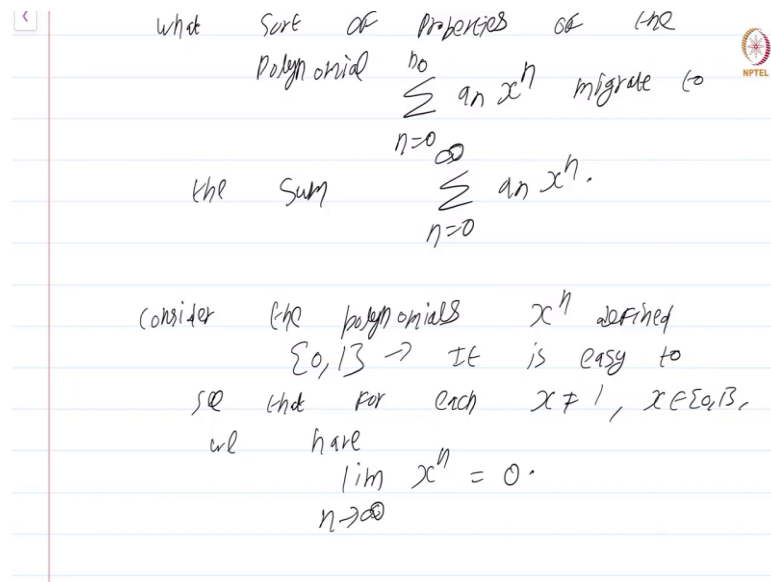 what sort of properties of the
polynomial n0 Σ n=0 an x^n migrate to
the sum ∞ Σ n=0 an x^n.
consider the polynomials x^n defined
[0,1] → It is easy to
see that for each x ≠ 1, x ∈ [0,1],
we have
lim n→∞ x^n = 0.
NPTEL